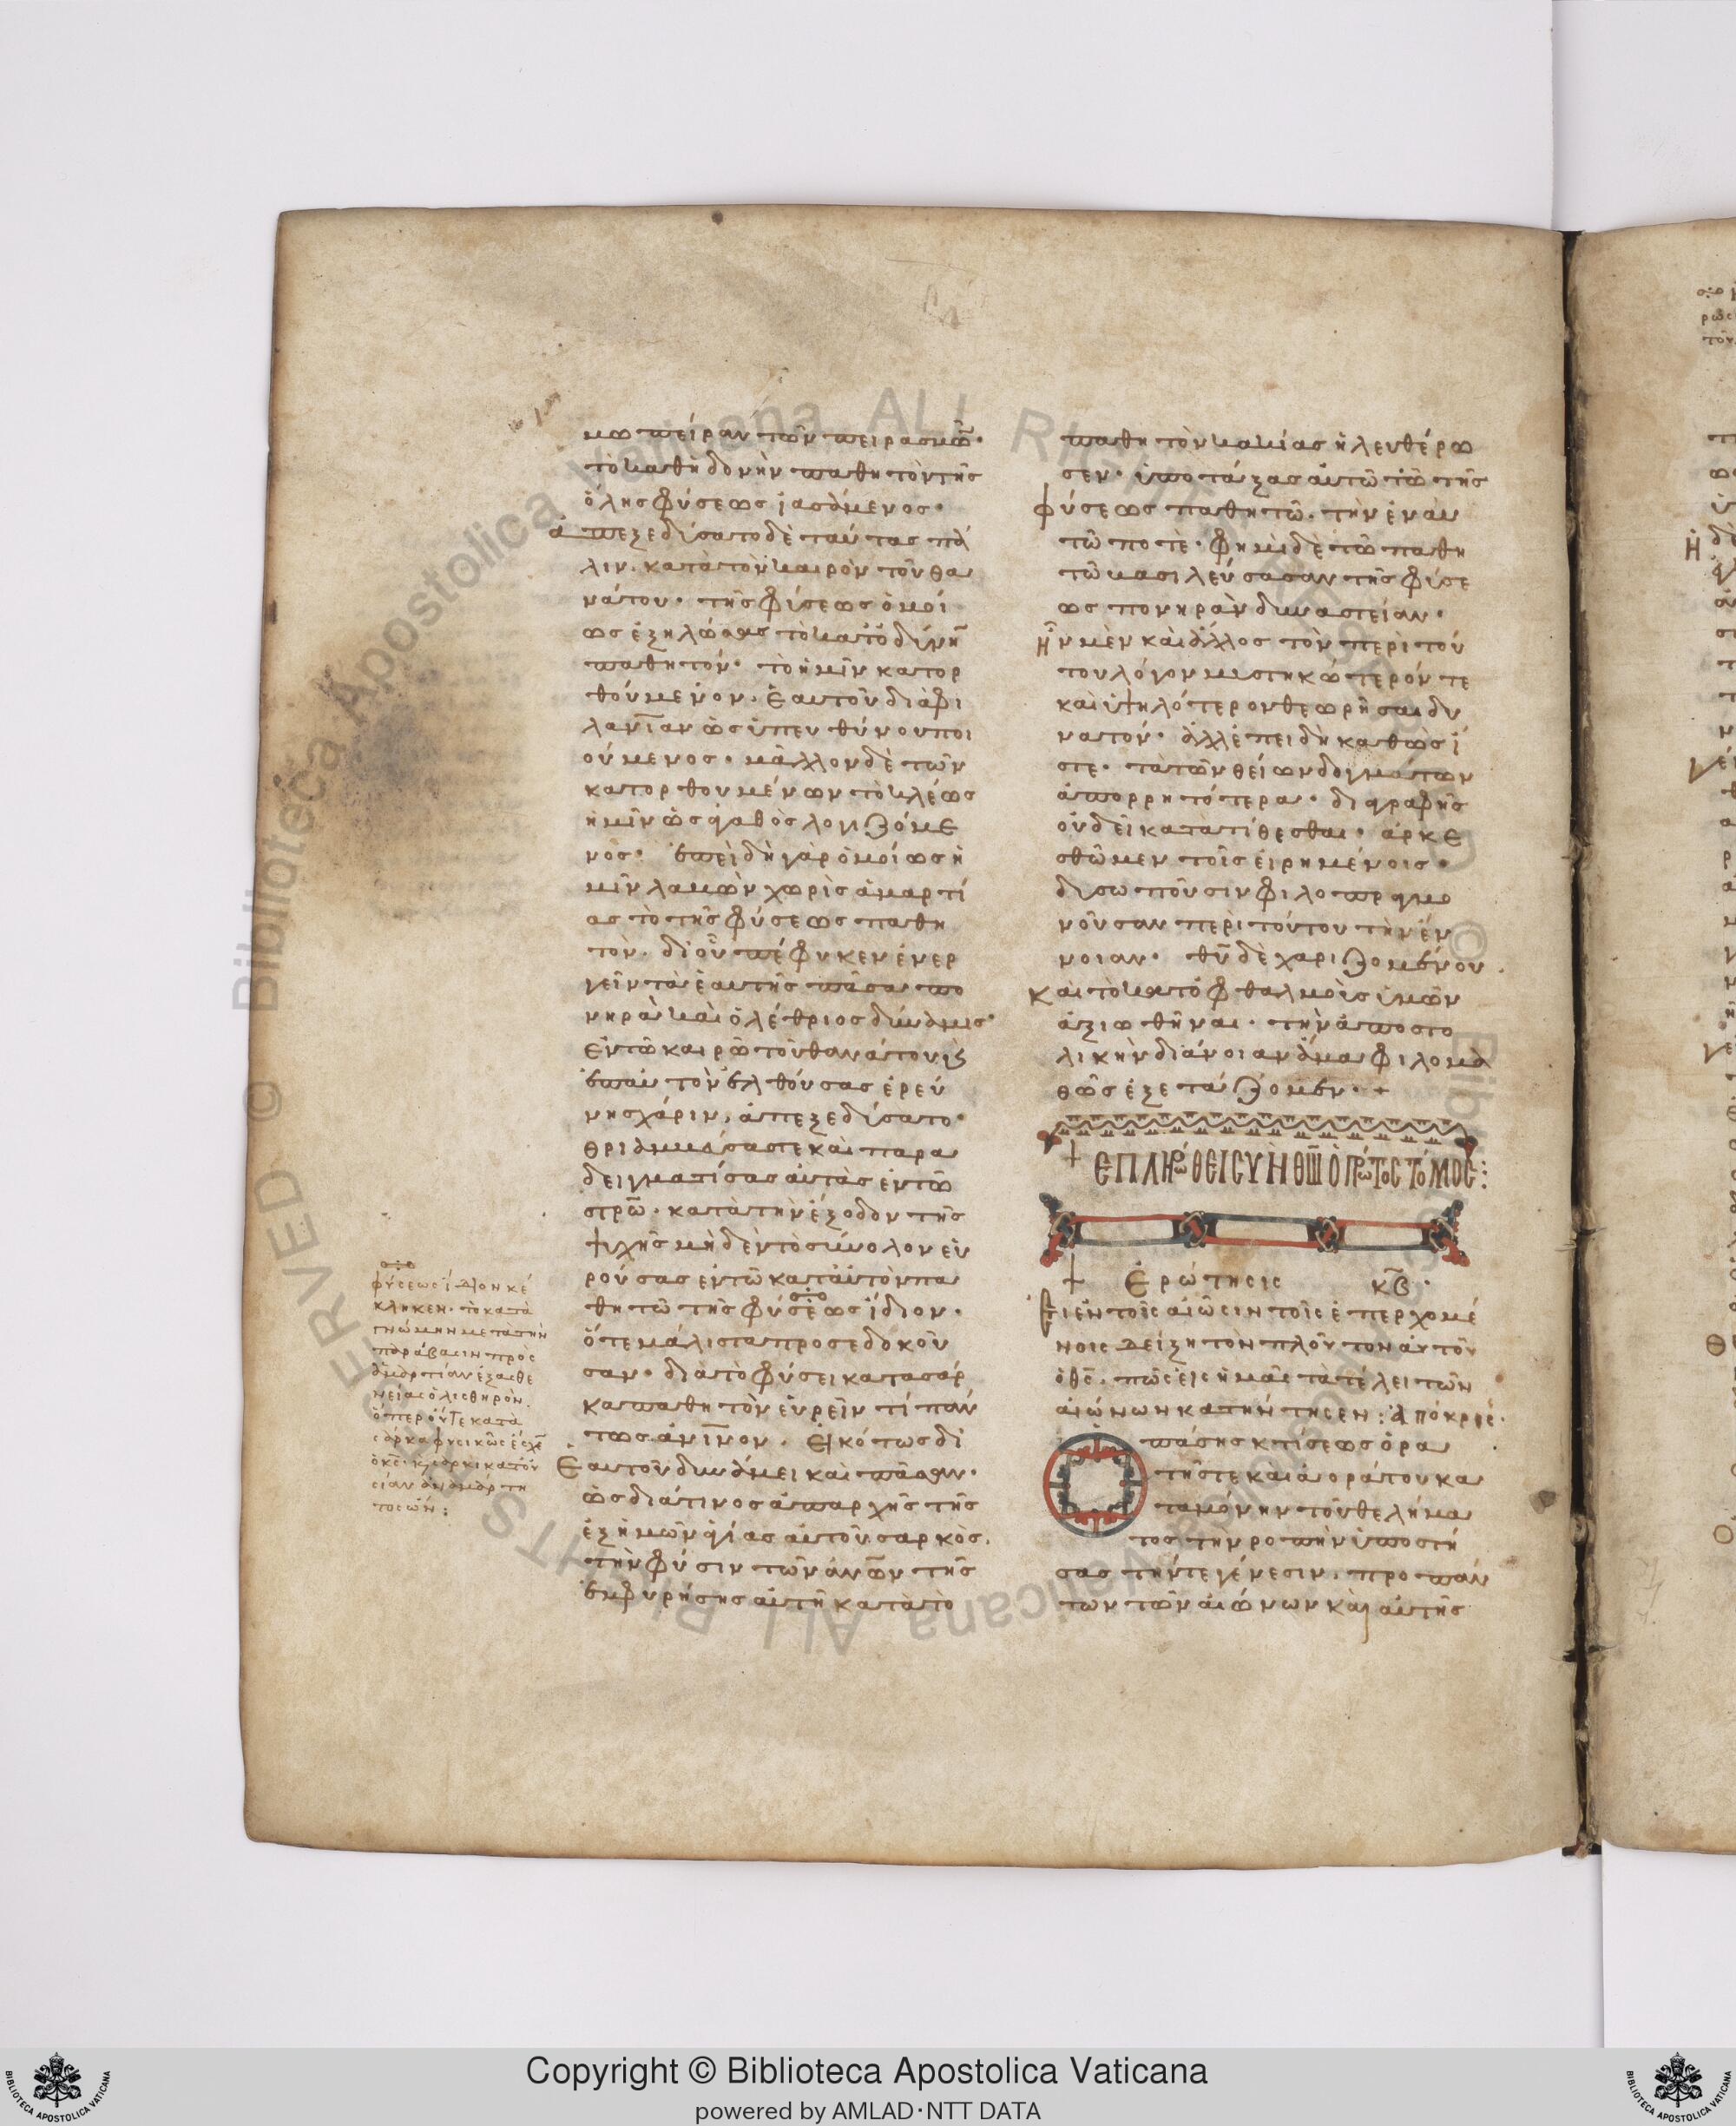 μω πείραν τῶν πειρασμῶν·
τὸ καθηδονὴν παθητὸν τῆς
ὅλης φύσεως ἰασάμενος·
ἀπεξεδύσατο δὲ ταύτας πά
λιν. κατὰ τὸν καιρὸν τοῦ θα
νάτου· τῆς φύσεως ὁμοί
ως ἐξηλώσας τὸ κατοδύνην
παθητόν· τὸ ἡμῖν κατορ
θούμενον. ἑαυτοῦ διὰ φι
λανίαν ὡς ὑπευθύνου ποι
ούμενος· μᾶλλον δὲ τῶν
κατορθουμένων τὸ κλέως
ἡμῖν ὡς ἀγαθὸς λογιζόμε
νος· ἐπειδὴ γὰρ ὁμοίως ἡ
μῖν λαβὼν χωρὶς ἁμαρτί
ας τὸ τῆς φύσεως παθη
τὸν. δι οὗ πέφυκεν ἐνερ
γεῖν τὰ ἑαυτῆς πᾶσα πο
νηρὰ καὶ ὀλέθριος δύναμις·
ἐν τῶ καιρῶ τοῦ θανάτου
ἐπαυτὸν ἐλθούσας ἐρεύ
νης χάριν, ἀπεξεδύσατο·
θριαμβεύσας τε καὶ παρα
δειγματίσας αὐτὰς ἐν τῶ
στρῶ· κατὰ τὴν ἔξοδον τῆς
ψυχῆς μηδὲν τὸ σύνολον εὑ
ρούσας ἐν τῶ κατ αὐτὸν πα
θητῶ τῆς φύσεως ἴδιον·
ὅτε μάλιστα προσεδοκοῦ
σαν· διὰ τὸ φύσει κατὰ σάρ
κα παθητὸν εὑρεῖν τί πάν
τως ἀνῖνον. εἰκότως δι
ἑαυτοῦ δυνάμει καὶ πᾶσαν·
ὡς διά τινος ἀπαρχῆς τῆς
ἐξ ἡμῶν ἁγίας αὐτοῦ σαρκὸς.
τὴν φύσιν τῶν ἀνῶν τῆς
ἐμφυρήσης αὐτῆ κατὰ τὸ
φύσεως ἴδιον κέ
κληκεν· τὸ κατὰ
γνώμην μετὰ τὴν
παράβασιν πρὸς
ἁμαρτίαν ἐξ ἀσθε
νείας ὀλισθηρὸν.
ὅπερ οὔτε κατὰ
σάρκα φυσικῶς ἔσχεν
παθητὸν κακίας ἠλευθέρω
σεν· ὑποτάξας αὐτῶ τῶ τῆς
φύσεως παθητῶ. τὴν ἐν αὐ
τῶ ποτὲ· φημὶ δὲ τῶ παθη
τῶ βασιλεύσασαν τῆς φύσε
ως πονηρὰν δυναστείαν·
ἦν μὲν καὶ ἄλλος τὸν περὶ τού
του λόγον μυστηκώτερόν τε
καὶ ὑψηλότερον θεωρῆσαι δυ
νατόν· ἀλλ ἐπειδὴ καθὼς ἴ
στε· τὰ τῶν θείων δογμάτων
ἀπορρητότερα· δι γραφῆς
οὐ δεῖ κατατίθεσθαι· ἀρκε
σθῶμεν τοῖς εἰρημένοις·
δυσωποῦσιν φιλοπραγμο
νοῦσαν περὶ τούτου τὴν ἔν
νοιαν· θῦ δὲ χαριζομένου
καὶ τὸ κατ ὀφθαλμοὺς ὑμῶν
ἀξιωθῆναι· τὴν ἀποστο
λικὴν διάνοιαν ἅμα φιλομα
θῶς ἐξετάζομεν· +
+ ΕΠΛΗΡΏΘΕΙ ΣῪΝ ΘΩ͂ Ὁ ΠΡΏΤΟΣ ΤΌΜΟΣ:
+ Ἐρώτησις κβ·
Εἰ ἐν τοῖς αἰῶσιν τοῖς ἐπερχομέ
νοις δείξη τὸν πλοῦτον αὐτοῦ
ὁ θς. πῶς εἰς ἡμᾶς τὰ τέλει τῶν
αἰώνων κατήντησεν: Ἀπόκρισ·
Ὁ πάσης κτίσεως ὁρα
τῆς τε καὶ ἀοράτου κα
τὰ μόνην τοῦ θελήμα
τος τὴν ροπὴν ὑποστή
σας τήν τε γένεσιν. πρὸ πάν
των τῶν αἰώνων καὶ αὐτῆς